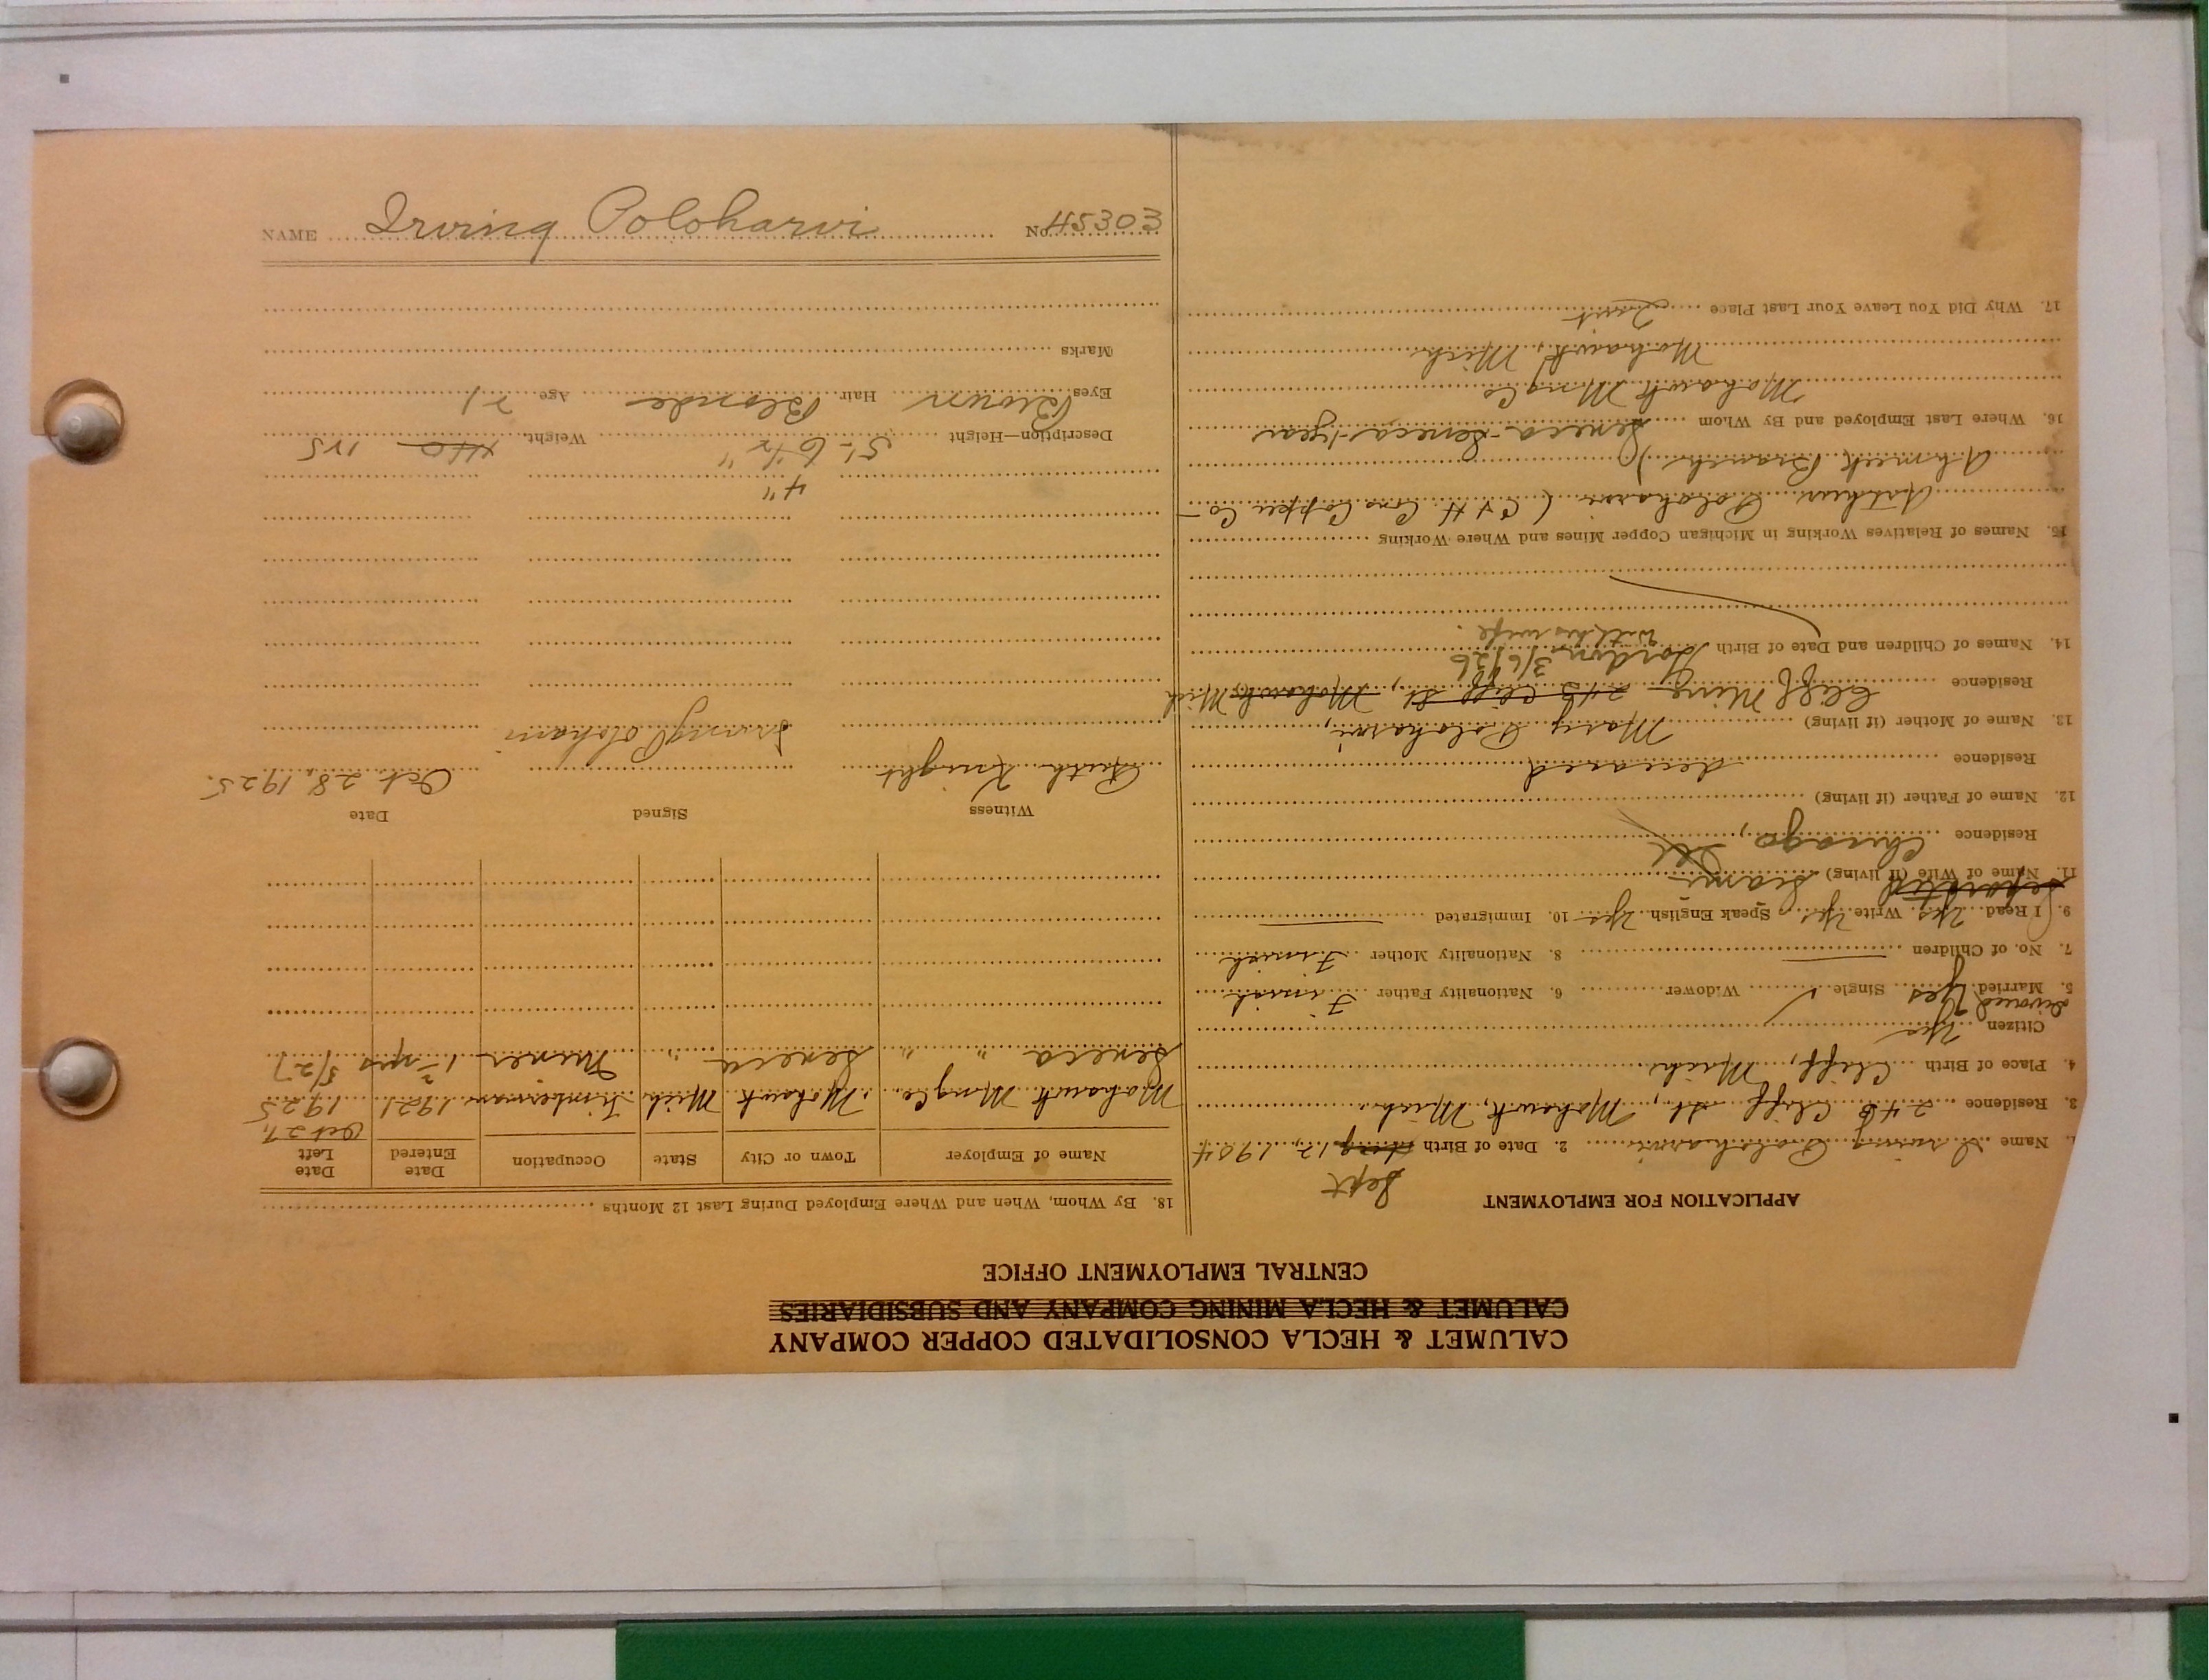 CALUMET & HECLA CONSOLIDATED COPPER COMPANY
CALUMET & HECLA MINING COMPANY AND SUBSIDIARIES
CENTRAL EMPLOYMENT OFFICE
APPLICATION FOR EMPLOYMENT
Sept
1. Name Irving Poloharvi 2. Date of Birth Aug 12, 1904
3. Residence 243 Cliff St, Mohawk, Mich.
4. Place of Birth Cliff, Mich.
Citizen Yes
Divorced
5. Married Yes Single Widower 6. Nationality Father Finish
7. No. of Children 8. Nationality Mother Finish
9. I Read Yes Write Yes Speak English Yes 10. Immigrated
Separated
11. Name of Wife (if living)
Residence Chicago, Ill
12. Name of Father (if living)
Residence deceased
13. Name of Mother (if living) Mary Poloharvi,
Residence Cliff Mine 243 Cliff St, Mohawk, Mich
14. Names of Children and Date of Birth Gordon 3/6/26
with his wife.
15. Names of Relatives Working in Michigan Copper Mines and Where Working
Arthur Poloharvi (C & H Cons. Copper Co-
Ahmeek Branch)
16. Where Last Employed and By Whom Seneca-Seneca-1 year
Mohawk Mng Co
Mohawk, Mich
17. Why Did You Leave Your Last Place Quit
18. By Whom, When and Where Employed During Last 12 Months
Name of Employer Town or City State Occupation Date Entered Date Left
Oct 27,
Mohawk Mng Co. Mohawk Mich Timberman 1921 1925
Seneca " " Seneca " Miner 1 yrs 5/27
Witness Signed Date
Ruth Knight Irving Poloharvi Oct. 28, 1925.
4"
Description—Height 5'-6 1/2" Weight 140 125
Eyes Brown Hair Blonde Age 21
Marks
NAME Irving Poloharvi No. 45303